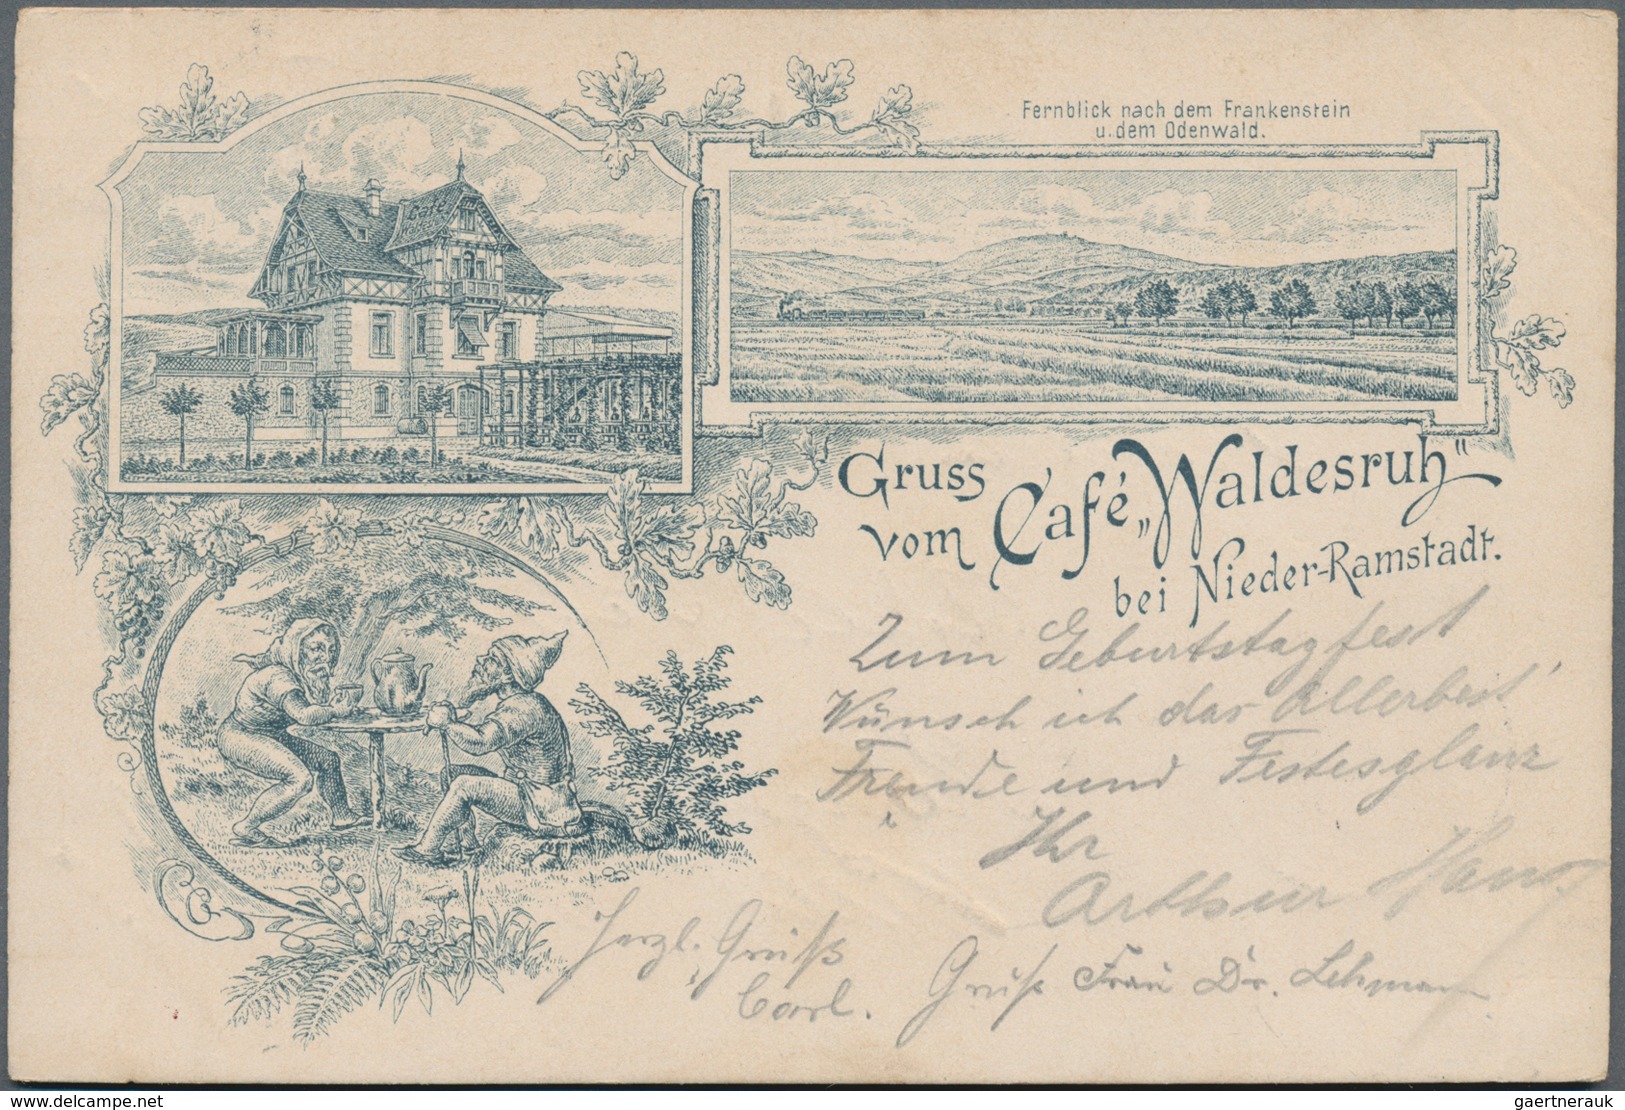 Fernblick nach dem Frankenstein
u. dem Odenwald.
Café
Gruss
vom Café „Waldesruh"
bei Nieder-Ramstadt.
Zum Geburtstagfest
Wünsch ich das Allerbest'
Freude und Festesglanz
Ihr
Arthur
Herzl. Gruß
Carl.
Gruß Frau Dr. Lehmann
www.delcampe.net
gaertnerauk